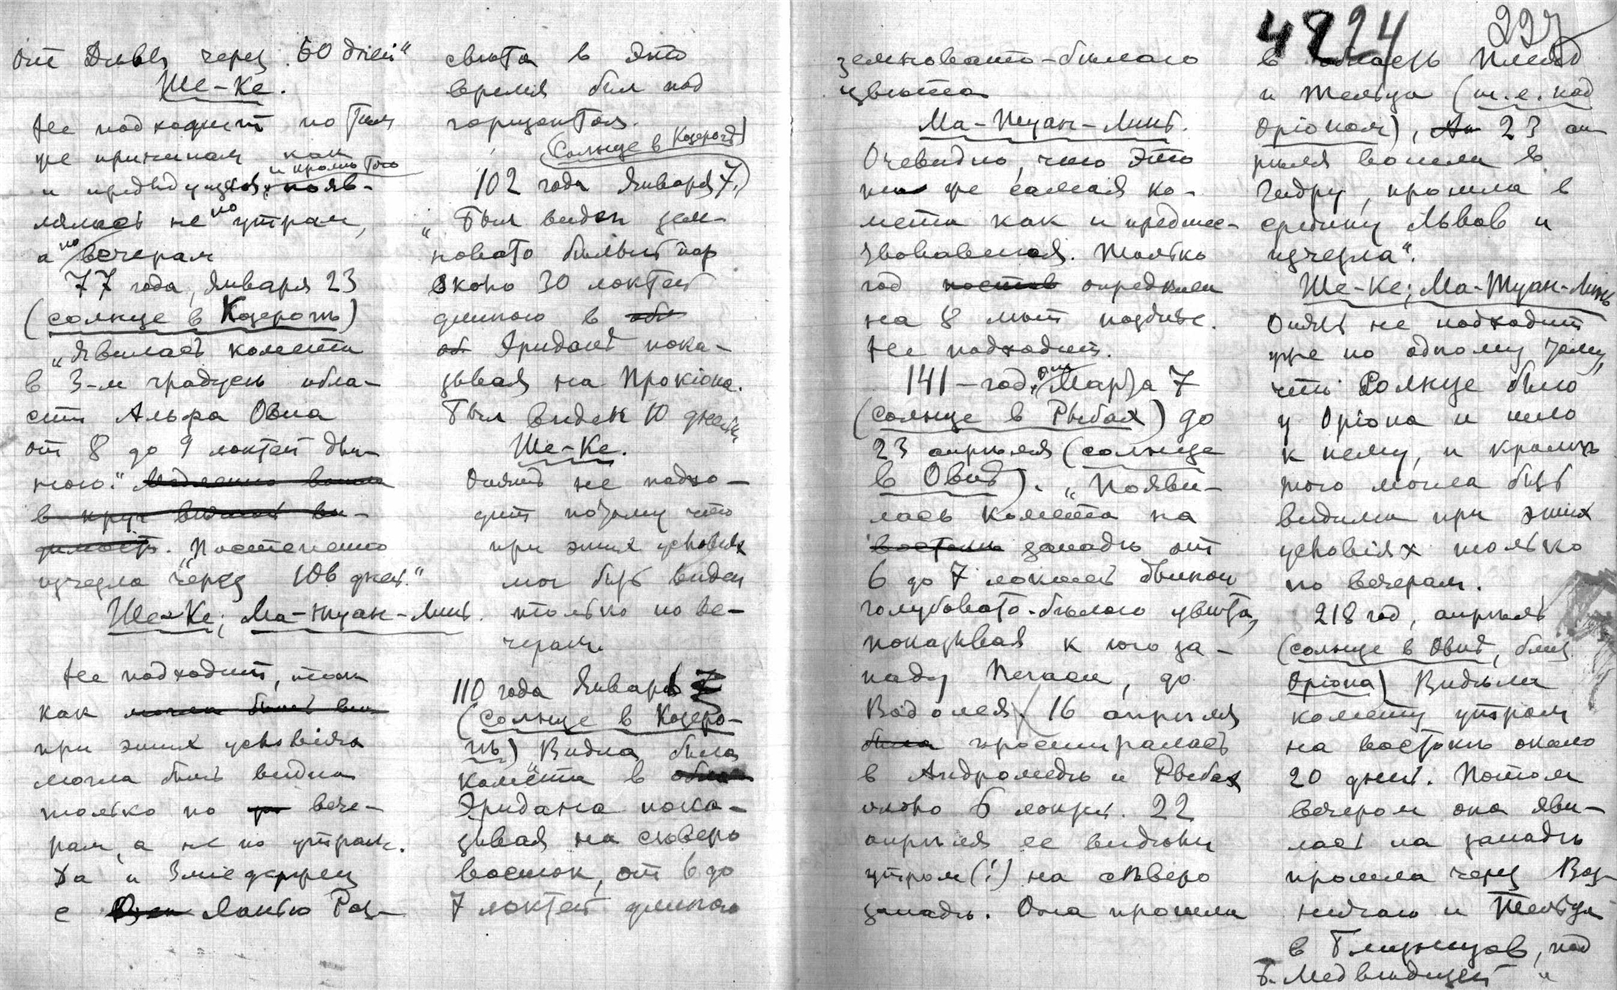 от Девы через 60 дней"
Ше-Ке.
Не подходит по тем
же причинам как
и кроме того
и предыдущая, появ-
лялась не по утрам,
а по вечерам
77 года, Января 23
(солнце в Козероге)
"Явилась комета
в 3-м градусе обла-
сти Альфа Овна
от 8 до 9 локтей дли-
ною."
Постепенно
изчезла через 106 дней."
Ше-Ке; Ма-туан-Линь.
Не подходит, так
как
при этих условіях
могла быть видна
только по вече-
рам, а не по утрам.
Да и Зміедержец
с
свита в это
время был под
горизонтом.
(Солнце в Козероге)
102 года Января 7.
"Был виден зеле-
новато белый пар
около 30 локтей
длиною в
Эридане пока-
зывая на Прокіона.
Был виден 10 дней"
Ше-Ке.
Опять не подхо-
дит потому что
при этих условіях
мог быть виден
только по ве-
черам.
110 года Январь
(солнце в Козеро-
ге) Видна была
комета в
Эридана пока-
зывая на северо
восток, от 6 до
7 локтей длиною
4224 227
зеленовато-белаго
цвета
Ма-Туан-Линь.
Очевидно, что это
та же самая ко-
мета как и предше-
ствовавшая. Только
год определен
на 8 лет позднее.
Не подходит.
141-год, Марта 7
(солнце в Рыбах) до
23 апреля (солнце
в Овне). "Появи-
лась комета на
западе от
6 до 7 локтей длиною
голубовато-белого цвета,
показывая к юго за-
паду Пегаса, до
Водолея 16 апреля
простиралась
в Андромеде и Рыбах
около 6 локтей. 22
апреля ее видели
утром(!) на северо
западе. Она прошла
в Плеяд
и Тельца (т.е. над
Оріоном), 23 ап-
реля вошла в
Гидру, прошла в
средину Львов и
изчезла".
Ше-Ке; Ма-Туан-Линь
Опять не подходит
уже по одному тому,
что Солнце было
у Оріона и шло
к нему, и кроме
того могла быть
видима при этих
условіях только
по вечерам.
218 год, апрель
(солнце в Овне, близ
Оріона) Видели
комету утром
на востоке около
20 дней. Потом
вечером она яви-
лась на западе
прошла через Воз-
ничаго и Тельца
в Близнецов, под
Б. Медведицей и